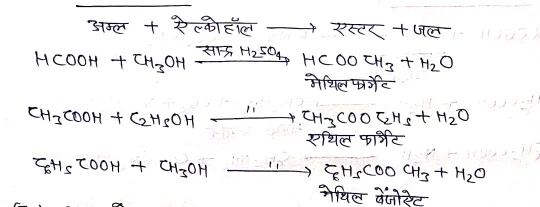 अम्ल + ऐल्कोहॉल ⟶ एस्टर + जल
HCOOH + CH₃OH ⟶ (सान्द्र H₂SO₄) HCOO CH₃ + H₂O
मेथिल फार्मेट
CH₃COOH + C₂H₅OH ⟶ (") CH₃COO C₂H₅ + H₂O
एथिल फार्मेट
C₆H₅ COOH + CH₃OH ⟶ (") C₆H₅COO CH₃ + H₂O
मेथिल बेंजोएट